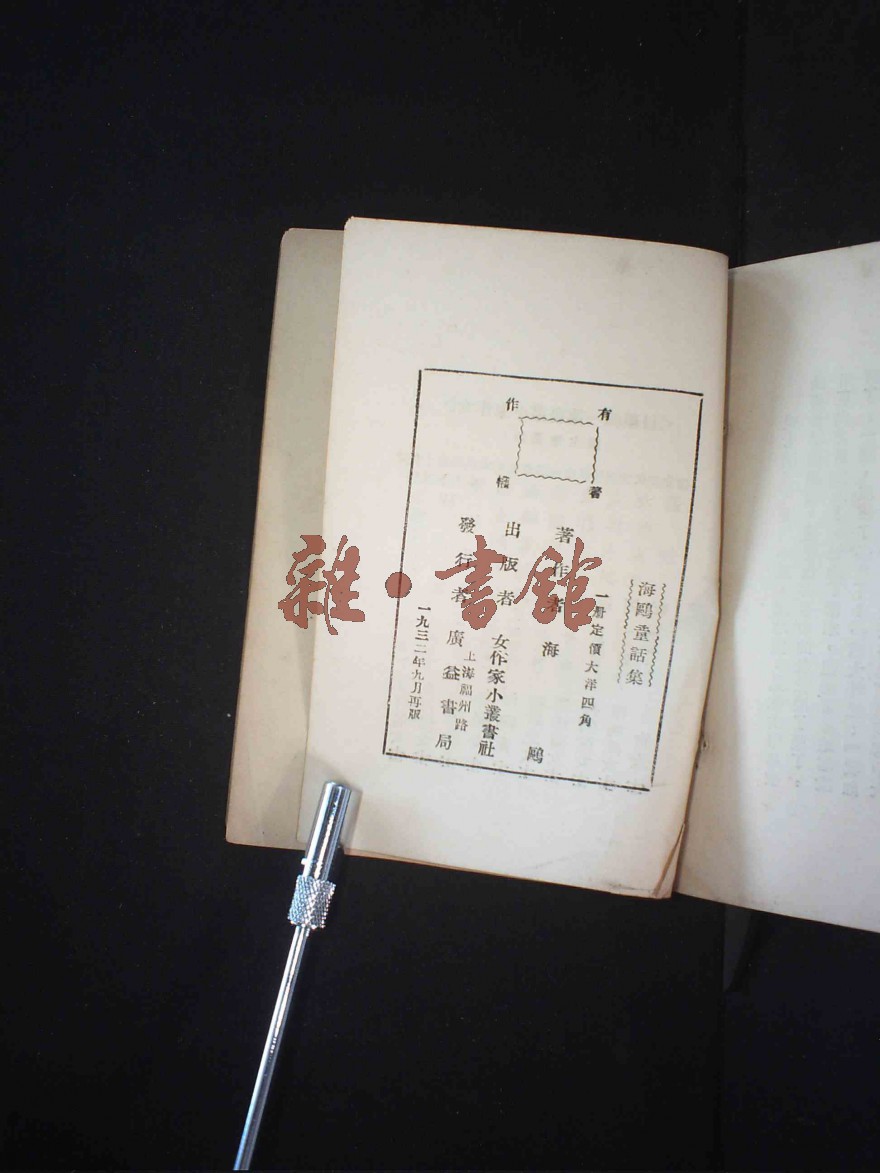 海鷗童話集
一冊定價大洋四角
有著作權
著作者 海鷗
出版者 女作家小叢書社
上海福州路
發行者 廣益書局
一九三二年九月再版
雜·書館